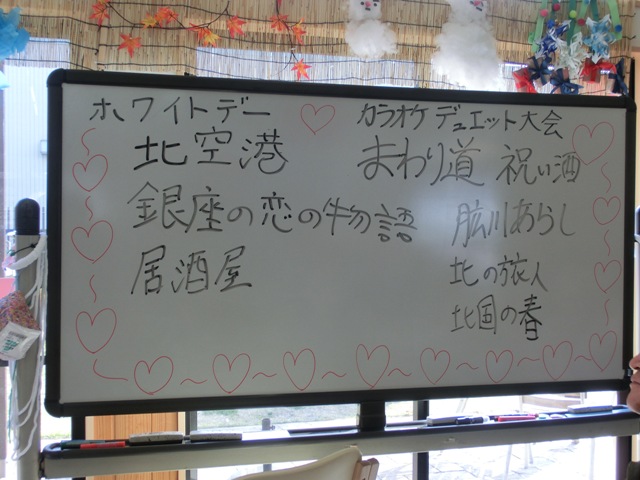 ホワイトデー カラオケ デュエット大会
北空港
まわり道 祝い酒
銀座の恋の物語
肱川あらし
居酒屋
北の旅人
北国の春